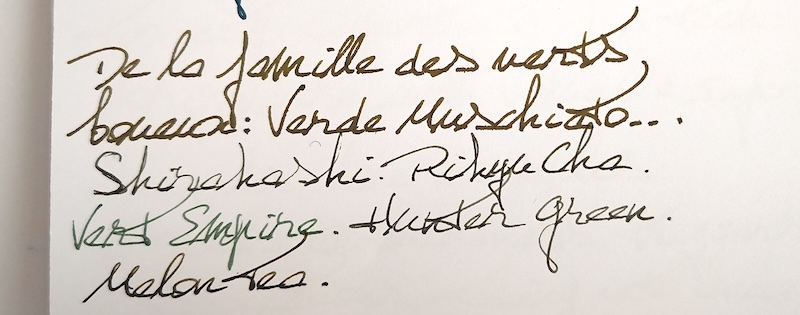 De la famille des verts,
boueux: Verde Muschiato...
Shirakashi. Rikyu Cha.
Vert Empire. Hunter Green.
Melon Tea.